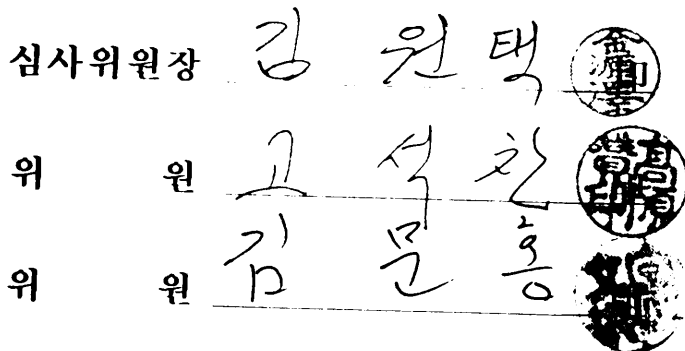 심사위원장 김 원 택
위 원 고 석 찬
위 원 김 문 홍